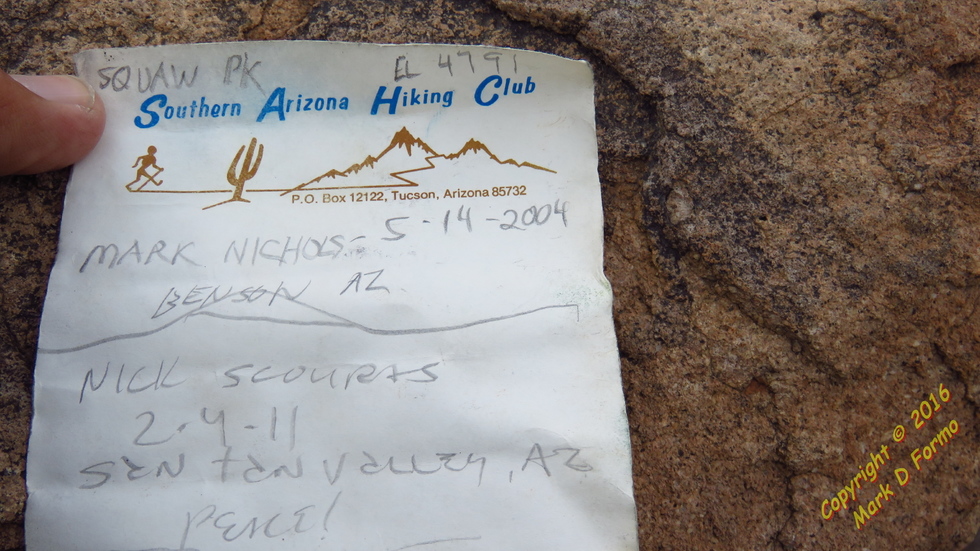 SQUAW PK EL 4791
Southern Arizona Hiking Club
P.O. Box 12122, Tucson, Arizona 85732
MARK NICHOLS - 5-14-2004
BENSON AZ.
NICK SCOURAS
2.4.11
SAN TAN VALLEY, AZ
PEACE!
Copyright © 2016
Mark D Formo